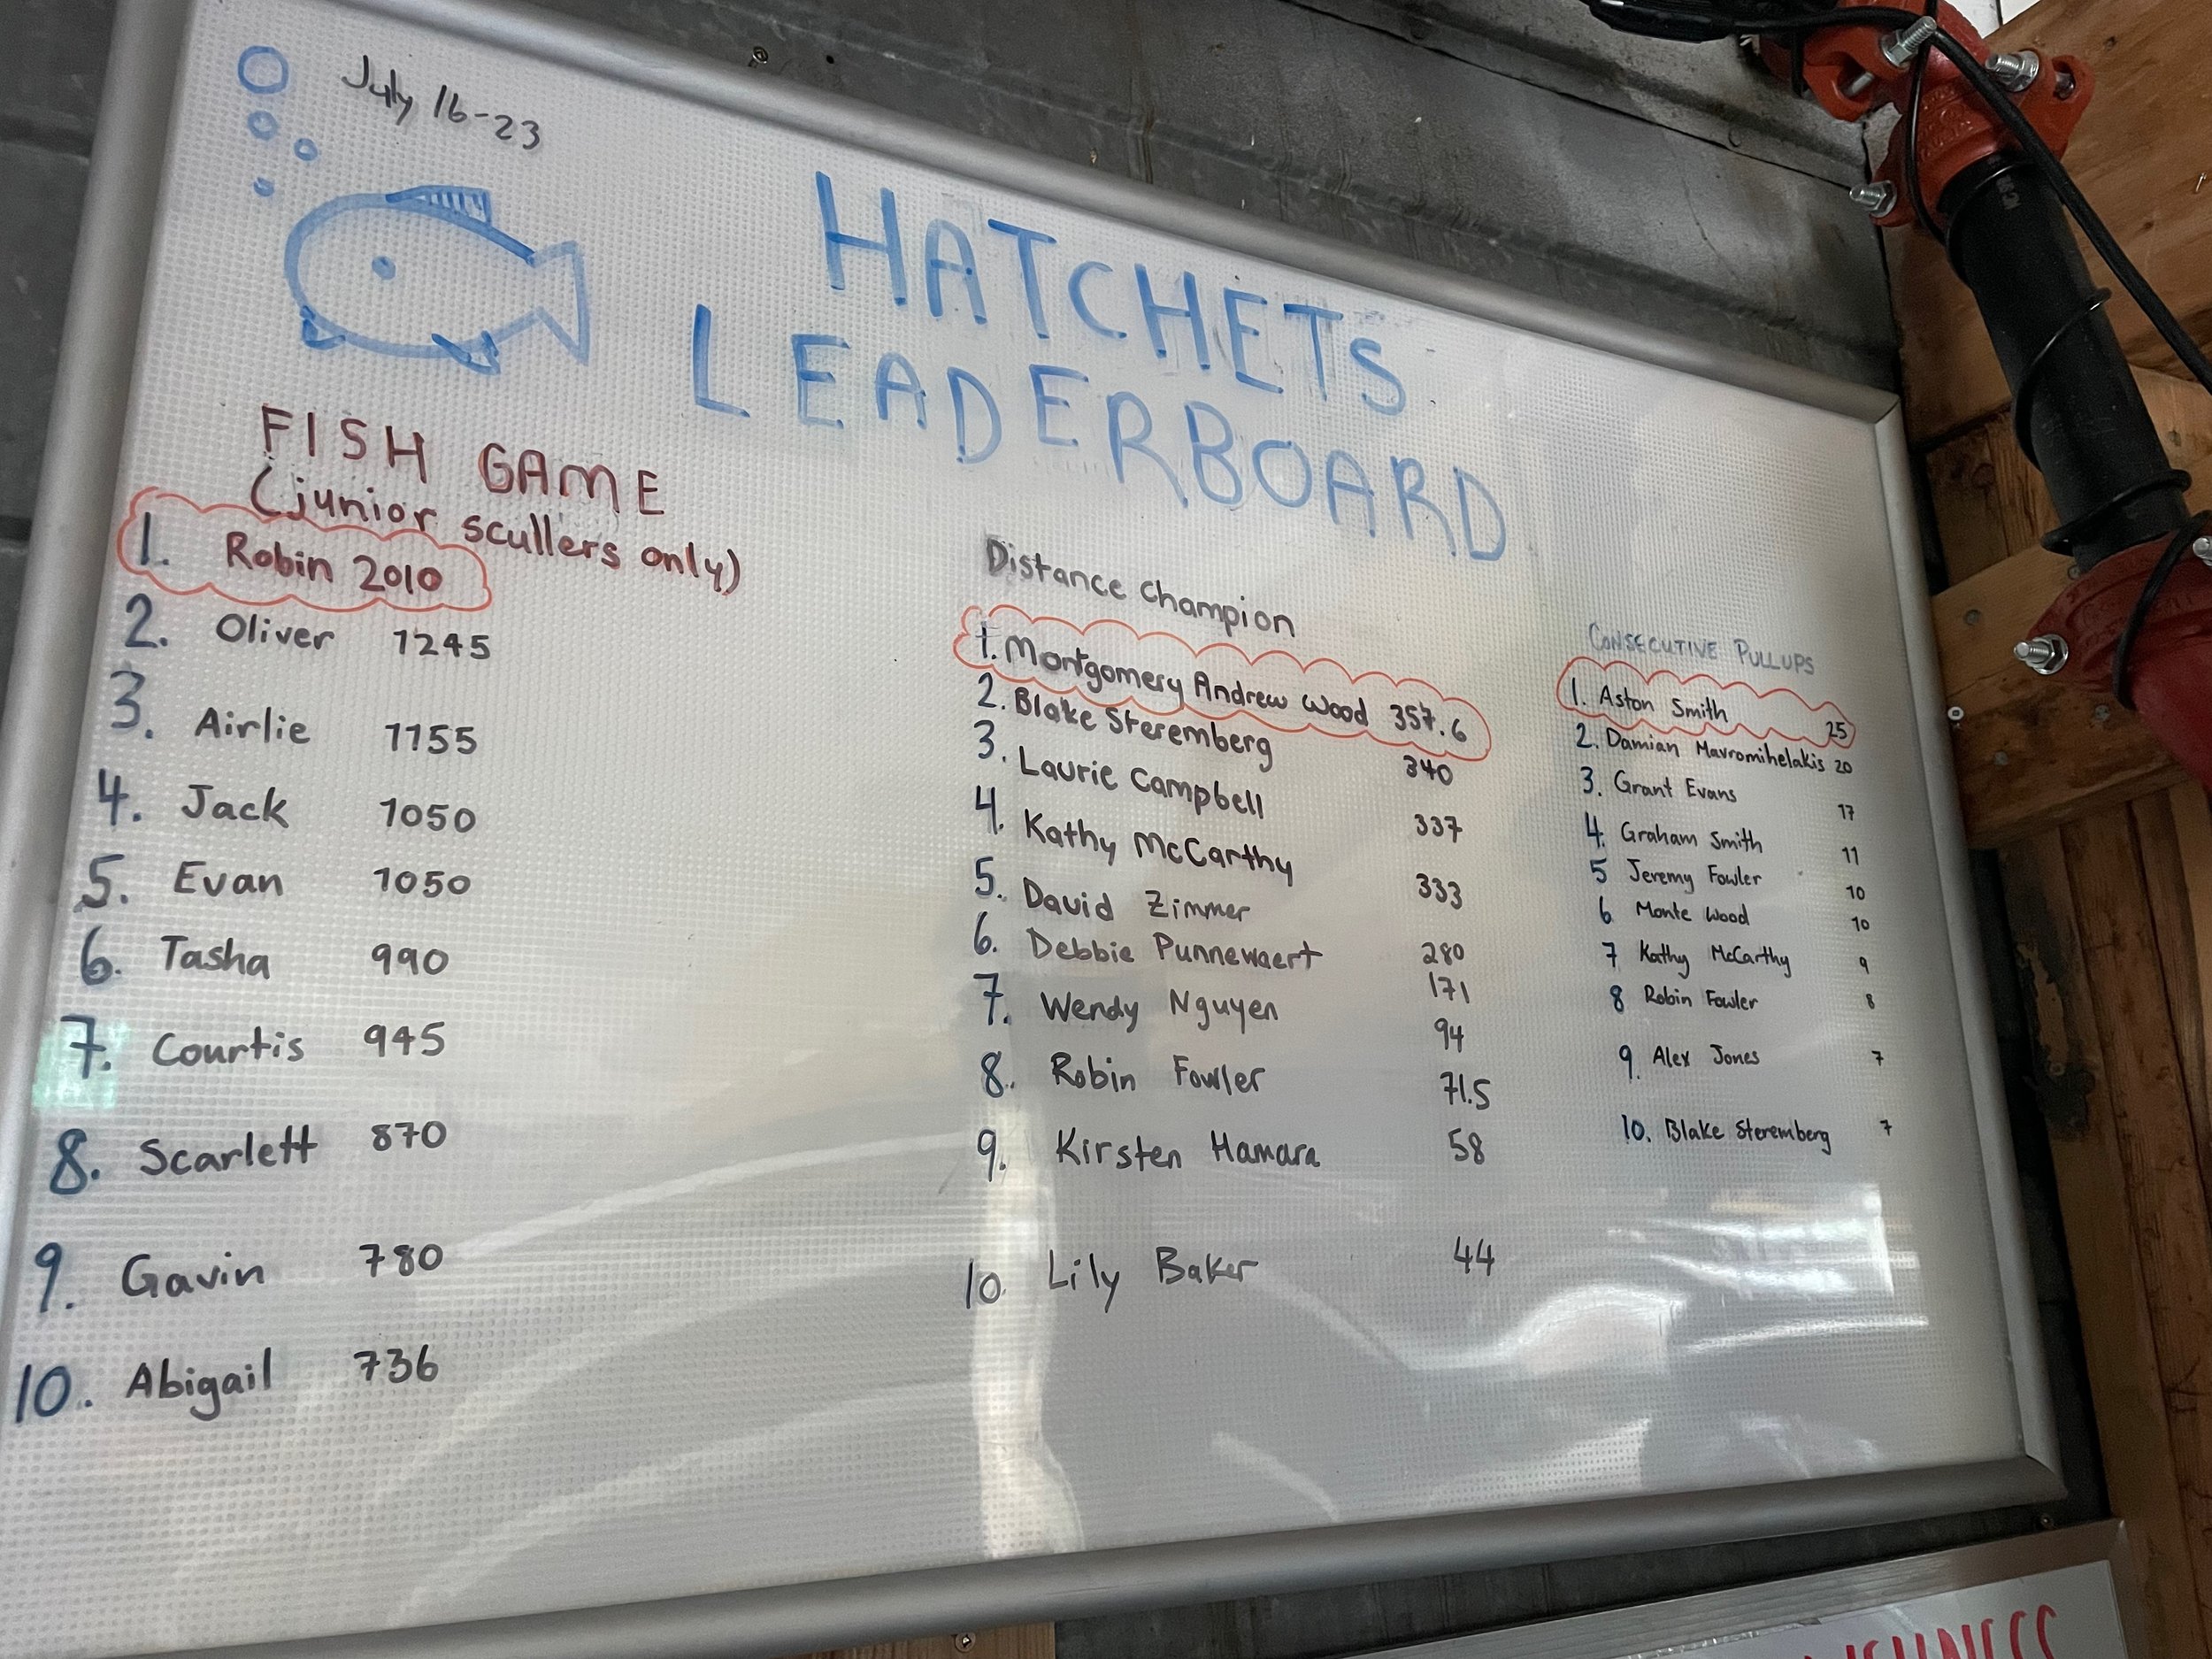 July 16-23
HATCHETS
LEADERBOARD
FISH GAME
(junior scullers only)
1. Robin 2010
2. Oliver 1245
3. Airlie 1155
4. Jack 1050
5. Evan 1050
6. Tasha 990
7. Courtis 945
8. Scarlett 870
9. Gavin 780
10. Abigail 736
Distance Champion
1. Montgomery Andrew Wood 357.6
2. Blake Steremberg 340
3. Laurie Campbell 337
4. Kathy McCarthy 333
5. David Zimmer 280
6. Debbie Punnewaert 171
7. Wendy Nguyen 94
8. Robin Fowler 71.5
9. Kirsten Hamara 58
10. Lily Baker 44
CONSECUTIVE PULLUPS
1. Aston Smith 25
2. Damian Mavromihelakis 20
3. Grant Evans 17
4. Graham Smith 11
5 Jeremy Fowler 10
6 Monte Wood 10
7 Kathy McCarthy 9
8 Robin Fowler 8
9. Alex Jones 7
10. Blake Steremberg 7